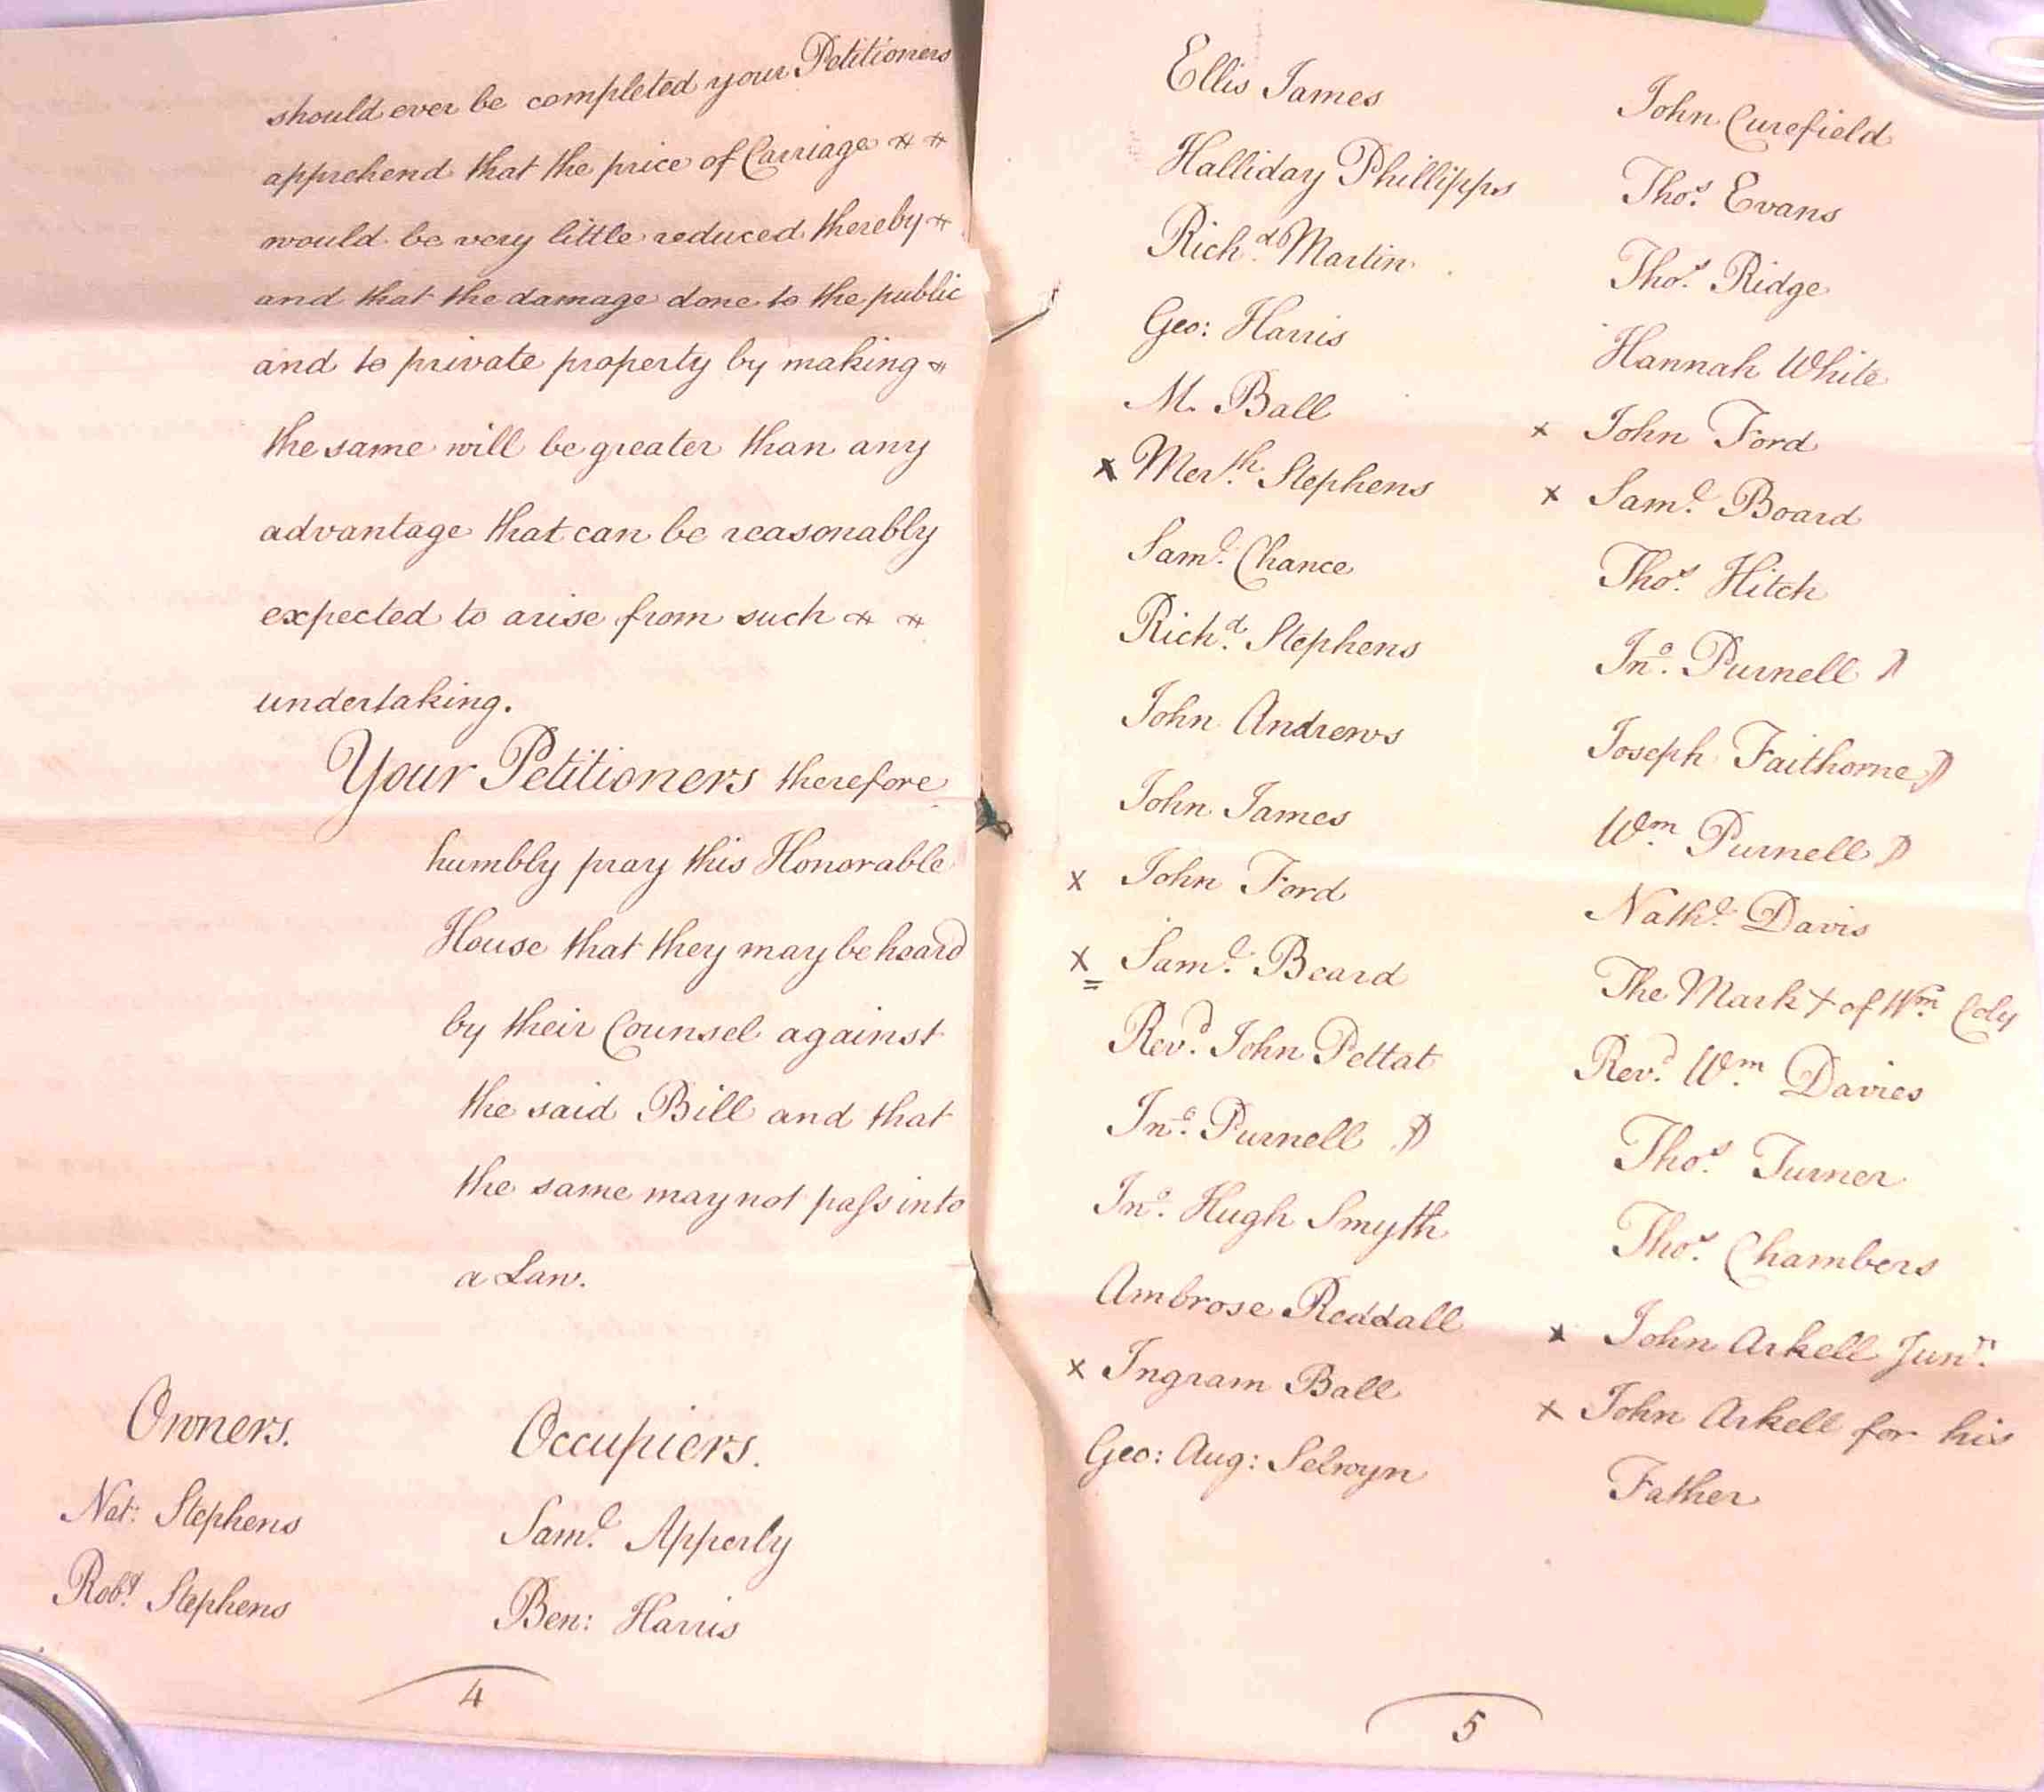 should ever be completed your Petitioners
apprehend that the price of Carriage
would be very little reduced thereby
and that the damage done to the public
and to private property by making
the same will be greater than any
advantage that can be reasonably
expected to arise from such
undertaking.
Your Petitioners therefore
humbly pray this Honorable
House that they may be heard
by their Counsel against
the said Bill and that
the same may not paſs into
a Law.
Owners.
Nat: Stephens
Robt. Stephens
Occupiers.
Saml. Apperly
Ben: Harris
4
Ellis James
Halliday Phillipps
Richd. Martin
Geo: Harris
M. Ball
x Merth. Stephens
Saml. Chance
Richd. Stephens
John Andrews
John James
x John Ford
x Saml. Beard
Revd. John Pettat
Jno. Purnell
Jno. Hugh Smyth
Ambrose Reddall
x Ingram Ball
Geo: Aug: Selwyn
John Curefield
Thos. Evans
Thos. Ridge
Hannah White
x John Ford
x Saml. Board
Thos. Hitch
Jno. Purnell
Joseph Faithorne
Wm Purnell
Nathl. Davis
The Mark + of Wm. Coly
Revd. Wm. Davies
Thos. Turner
Thos. Chambers
x John Arkell Junr.
x John Arkell for his
Father
5